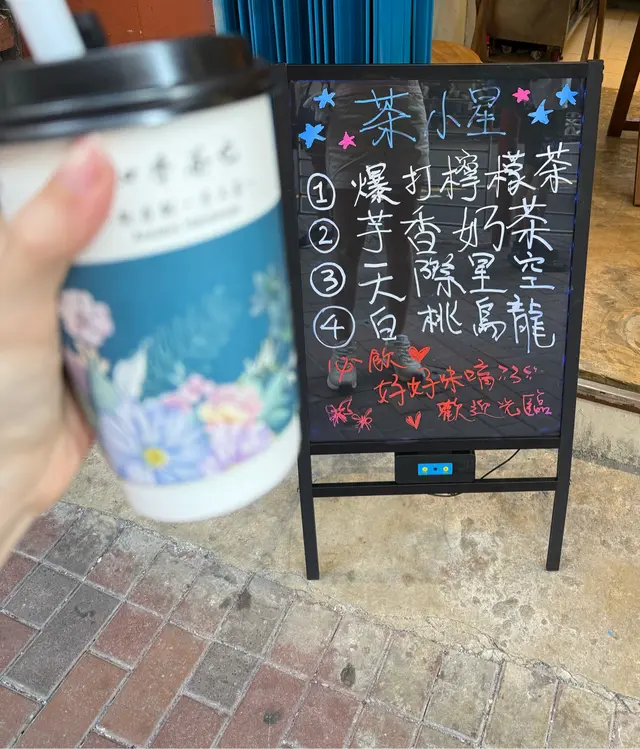 茶小星
① 爆打檸檬茶
② 芋香奶茶
③ 天際星空
④ 白桃烏龍
必飲
好好味㗎
歡迎光臨